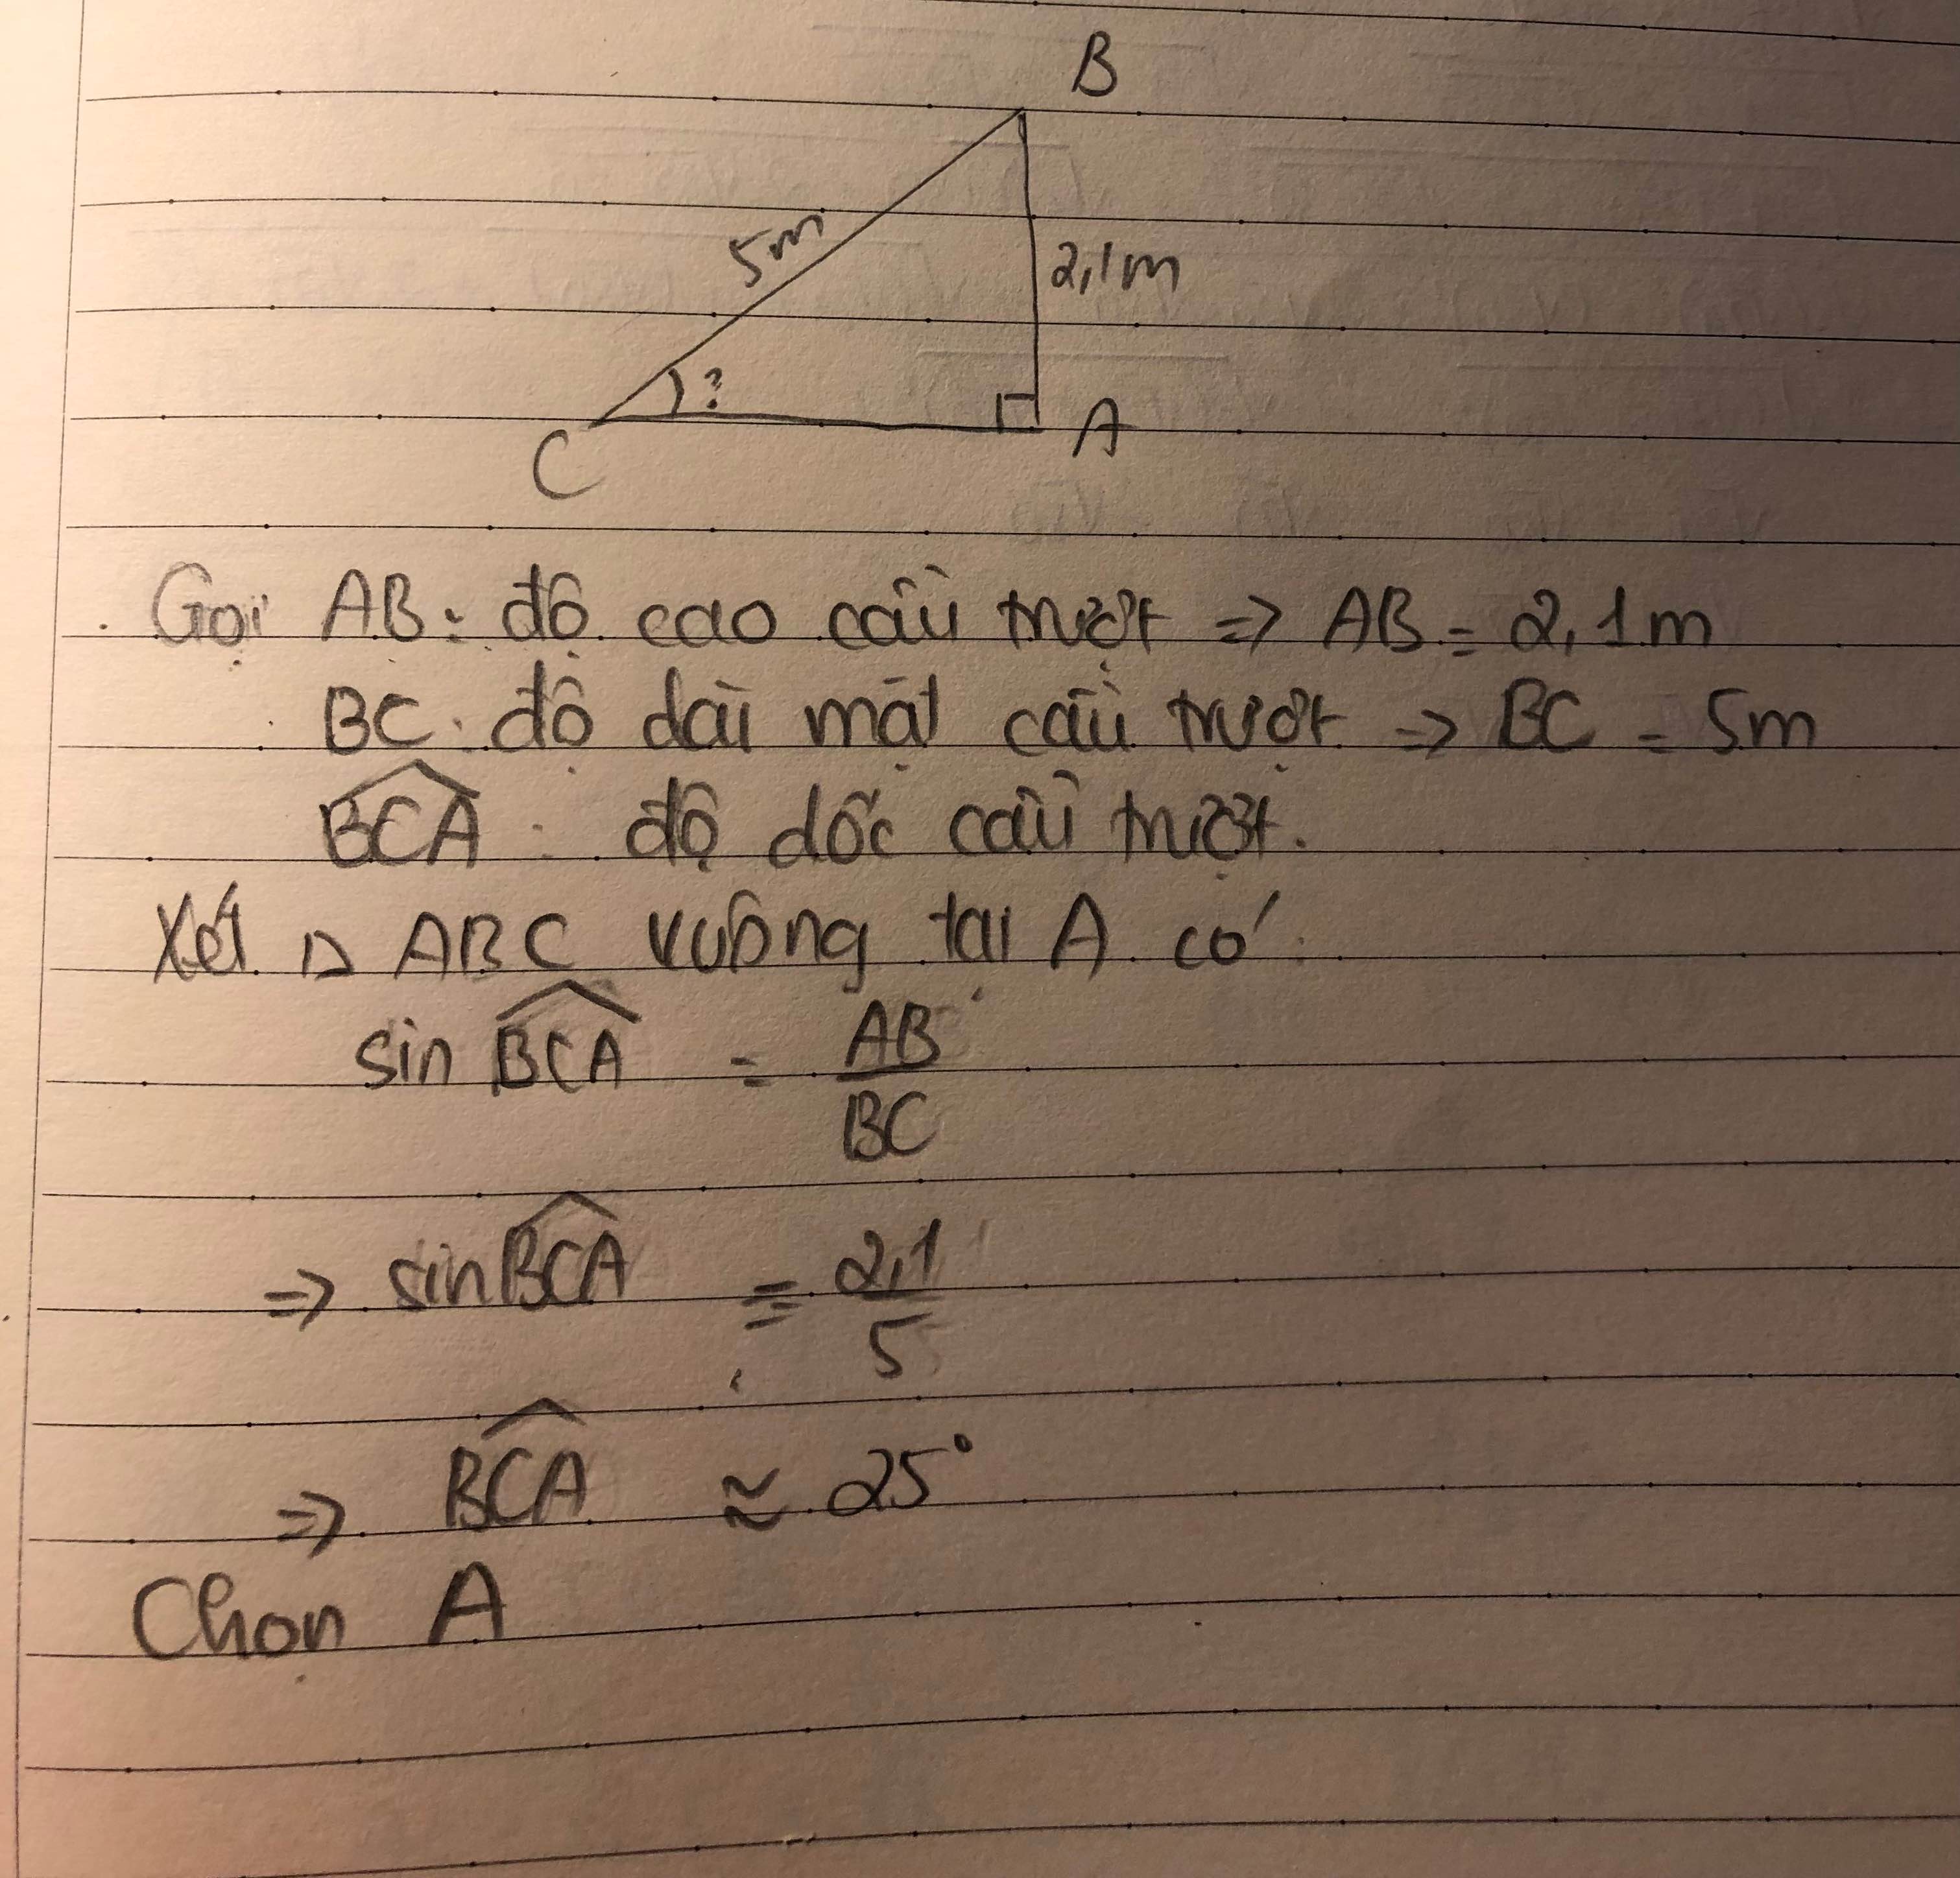 B
5m
2,1m
?
C
A
Gọi AB: độ cao cầu trượt => AB = 2,1m
BC: độ dài mặt cầu trượt => BC = 5m
\widehat{BCA}: độ dốc cầu trượt.
Xét △ ABC vuông tại A có:
sin \widehat{BCA} = \frac{AB}{BC}
=> sin \widehat{BCA} = \frac{2,1}{5}
=> \widehat{BCA} ≈ 25°
Chọn A